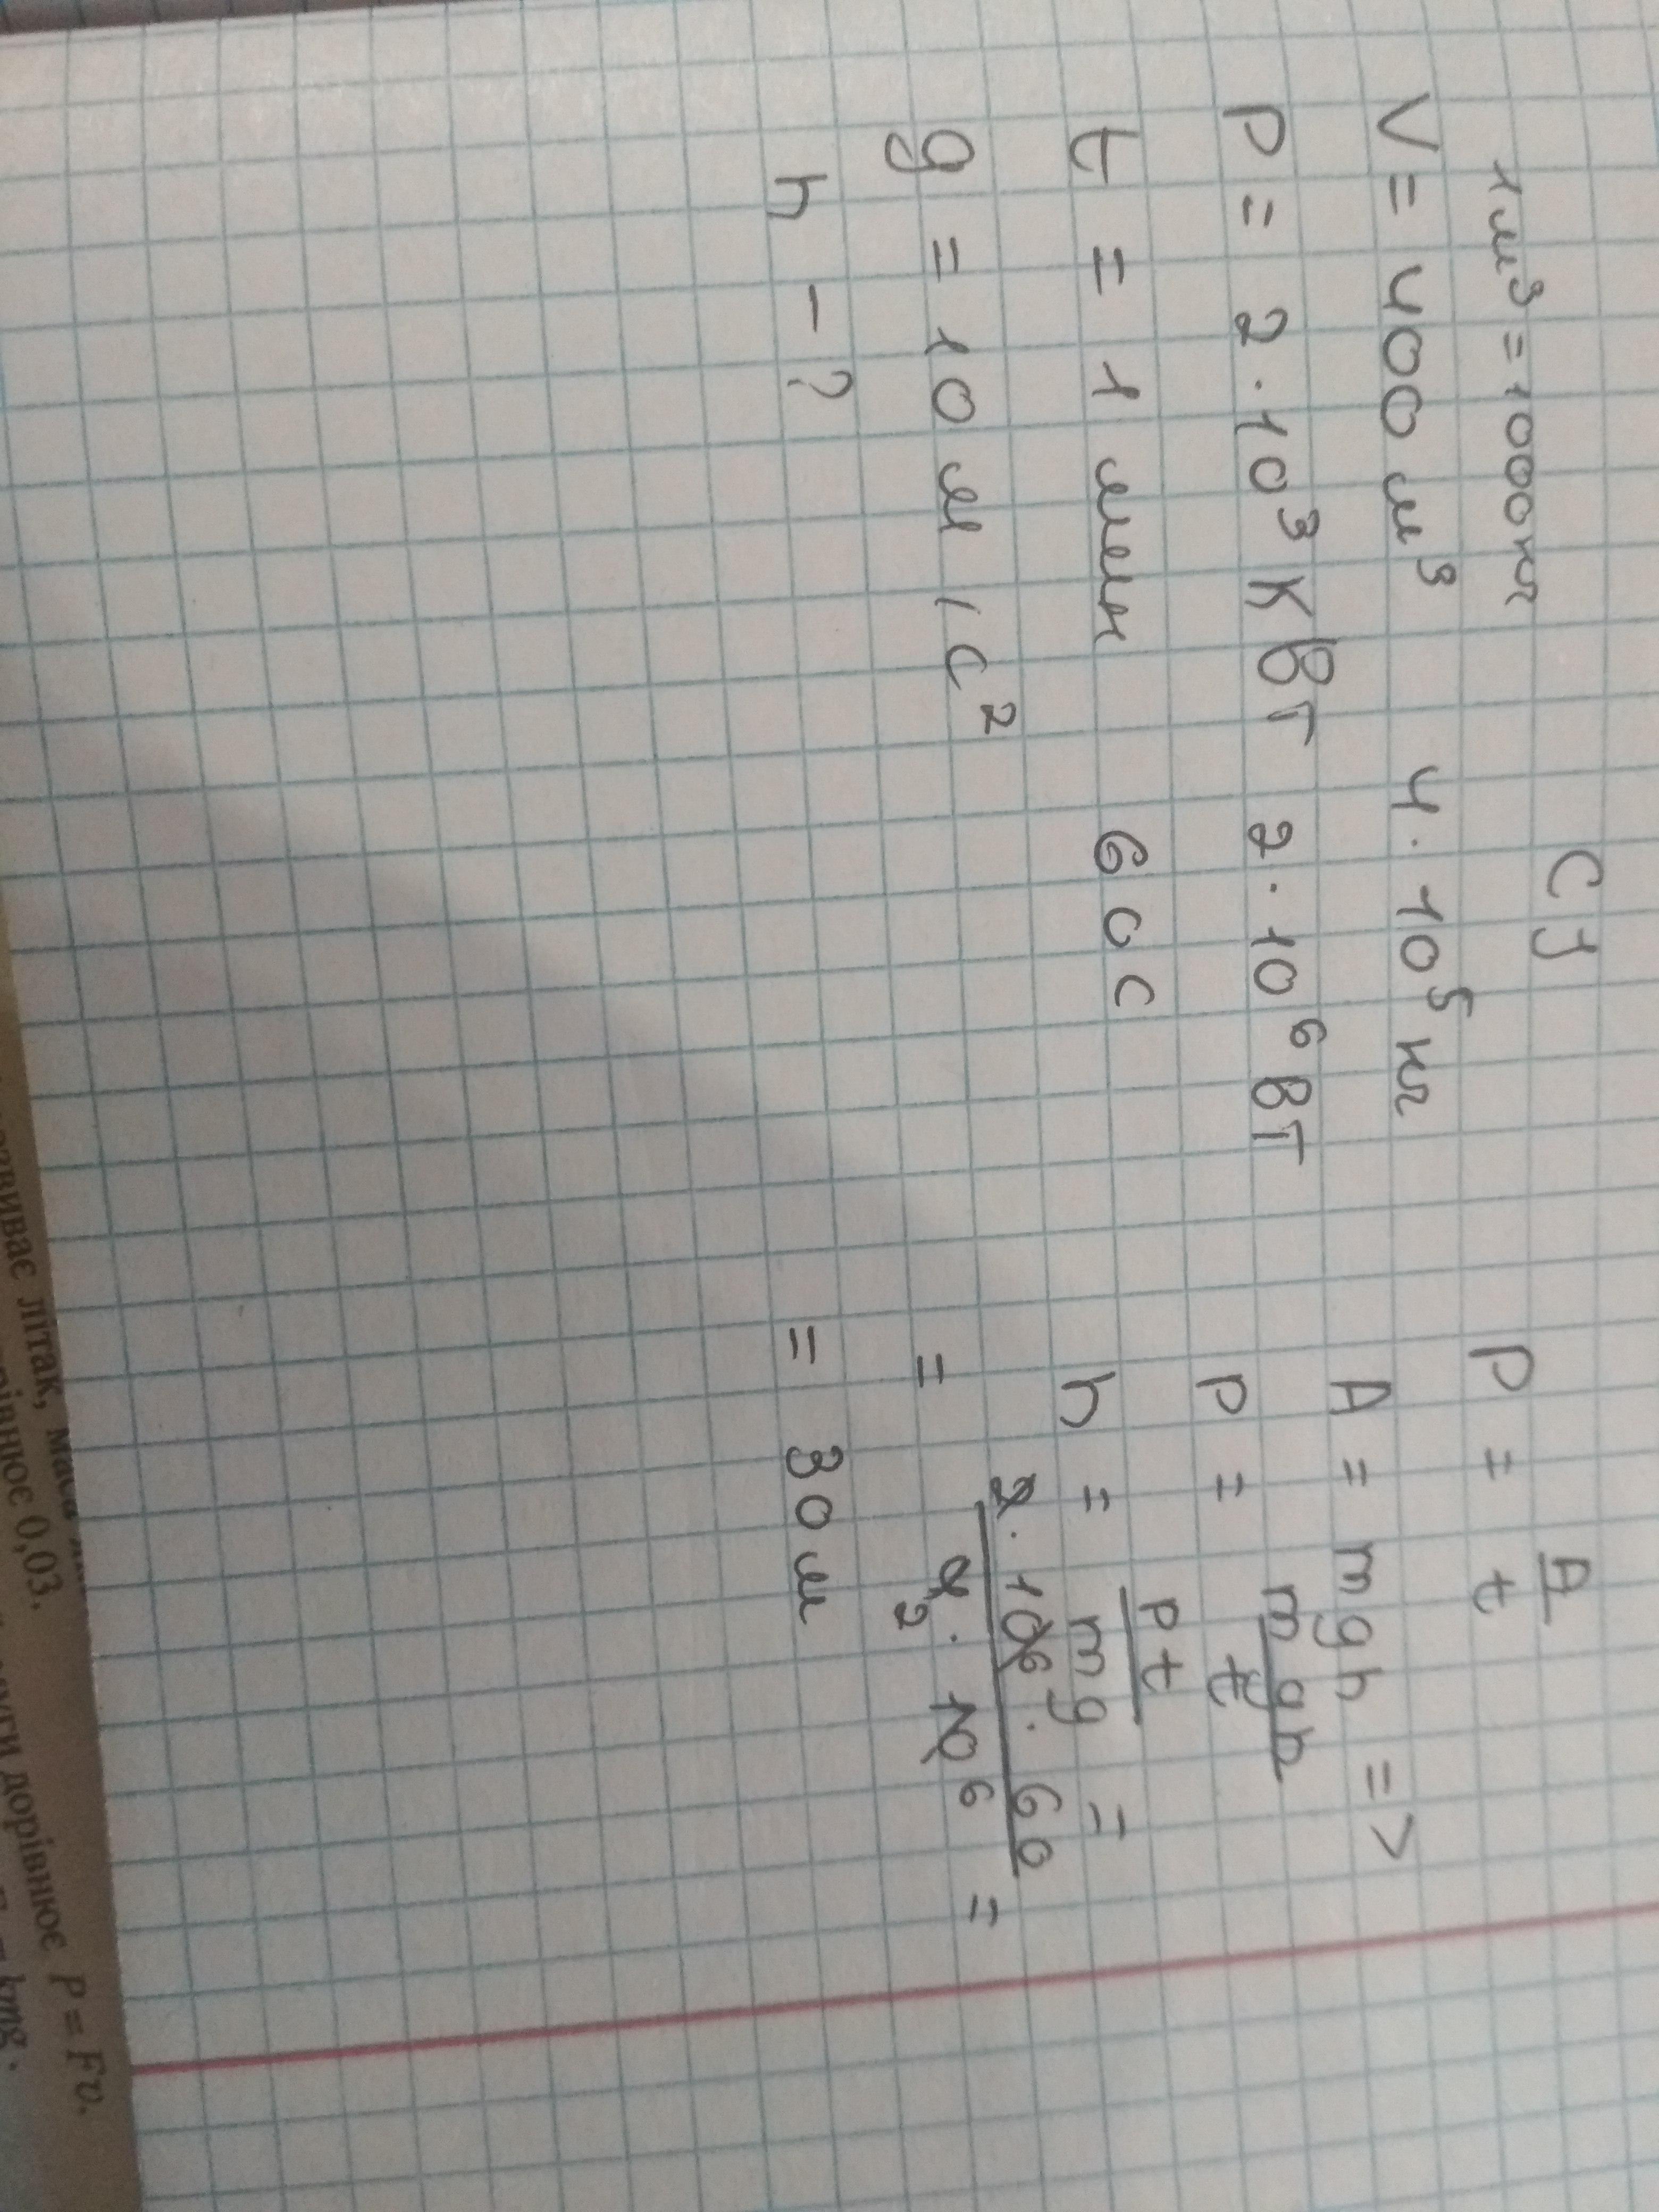 1 м³ = 1000 кг
СІ
V = 400 м³ 4 · 10⁵ кг
P = 2 · 10³ кВт 2 · 10⁶ Вт
t = 1 мин 60 с
g = 10 м/с²
h - ?
P = A/t
A = mgh =>
P = mgh/t
h = Pt/mg =
= 2 · 10⁶ · 60 / 4₂ · 10⁶ =
= 30 м
звиває літак, мас
рівнює 0,03.
дорівнює P = Fv.
= kmg.